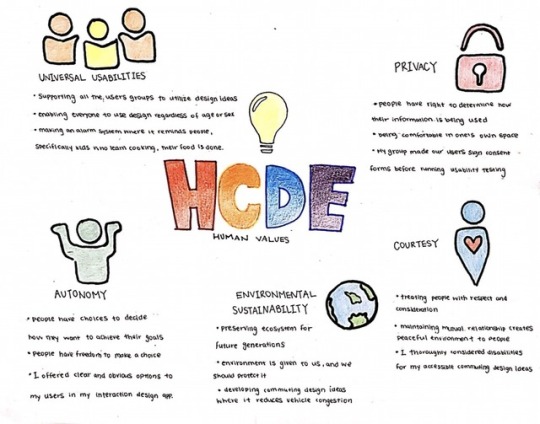 UNIVERSAL USABILITIES
• Supporting all the users groups to utilize design ideas
• enabling everyone to use design regardless of age or sex
• making an alarm system where it reminds people,
specifically kids who learn cooking, their food is done.
PRIVACY
• people have right to determine how
their information is being used
• being comfortable in one's own space
• My group made our users sign consent
forms before running usability testing
HCDE
HUMAN VALUES
AUTONOMY
• People have choices to decide
how they want to achieve their goals
• People have freedom to make a choice
• I offered clear and obvious options to
my users in my interaction design app.
ENVIRONMENTAL
SUSTAINABILITY
• preserving ecosystem for
future generations
• environment is given to us, and we
should protect it
• developing commuting design ideas
where it reduces vehicle congestion
COURTESY
• treating people with respect and
consideration
• maintaining mutual relationship creates
peaceful environment to people
• I thoroughly considered disabilities
for my accessible commuting design ideas